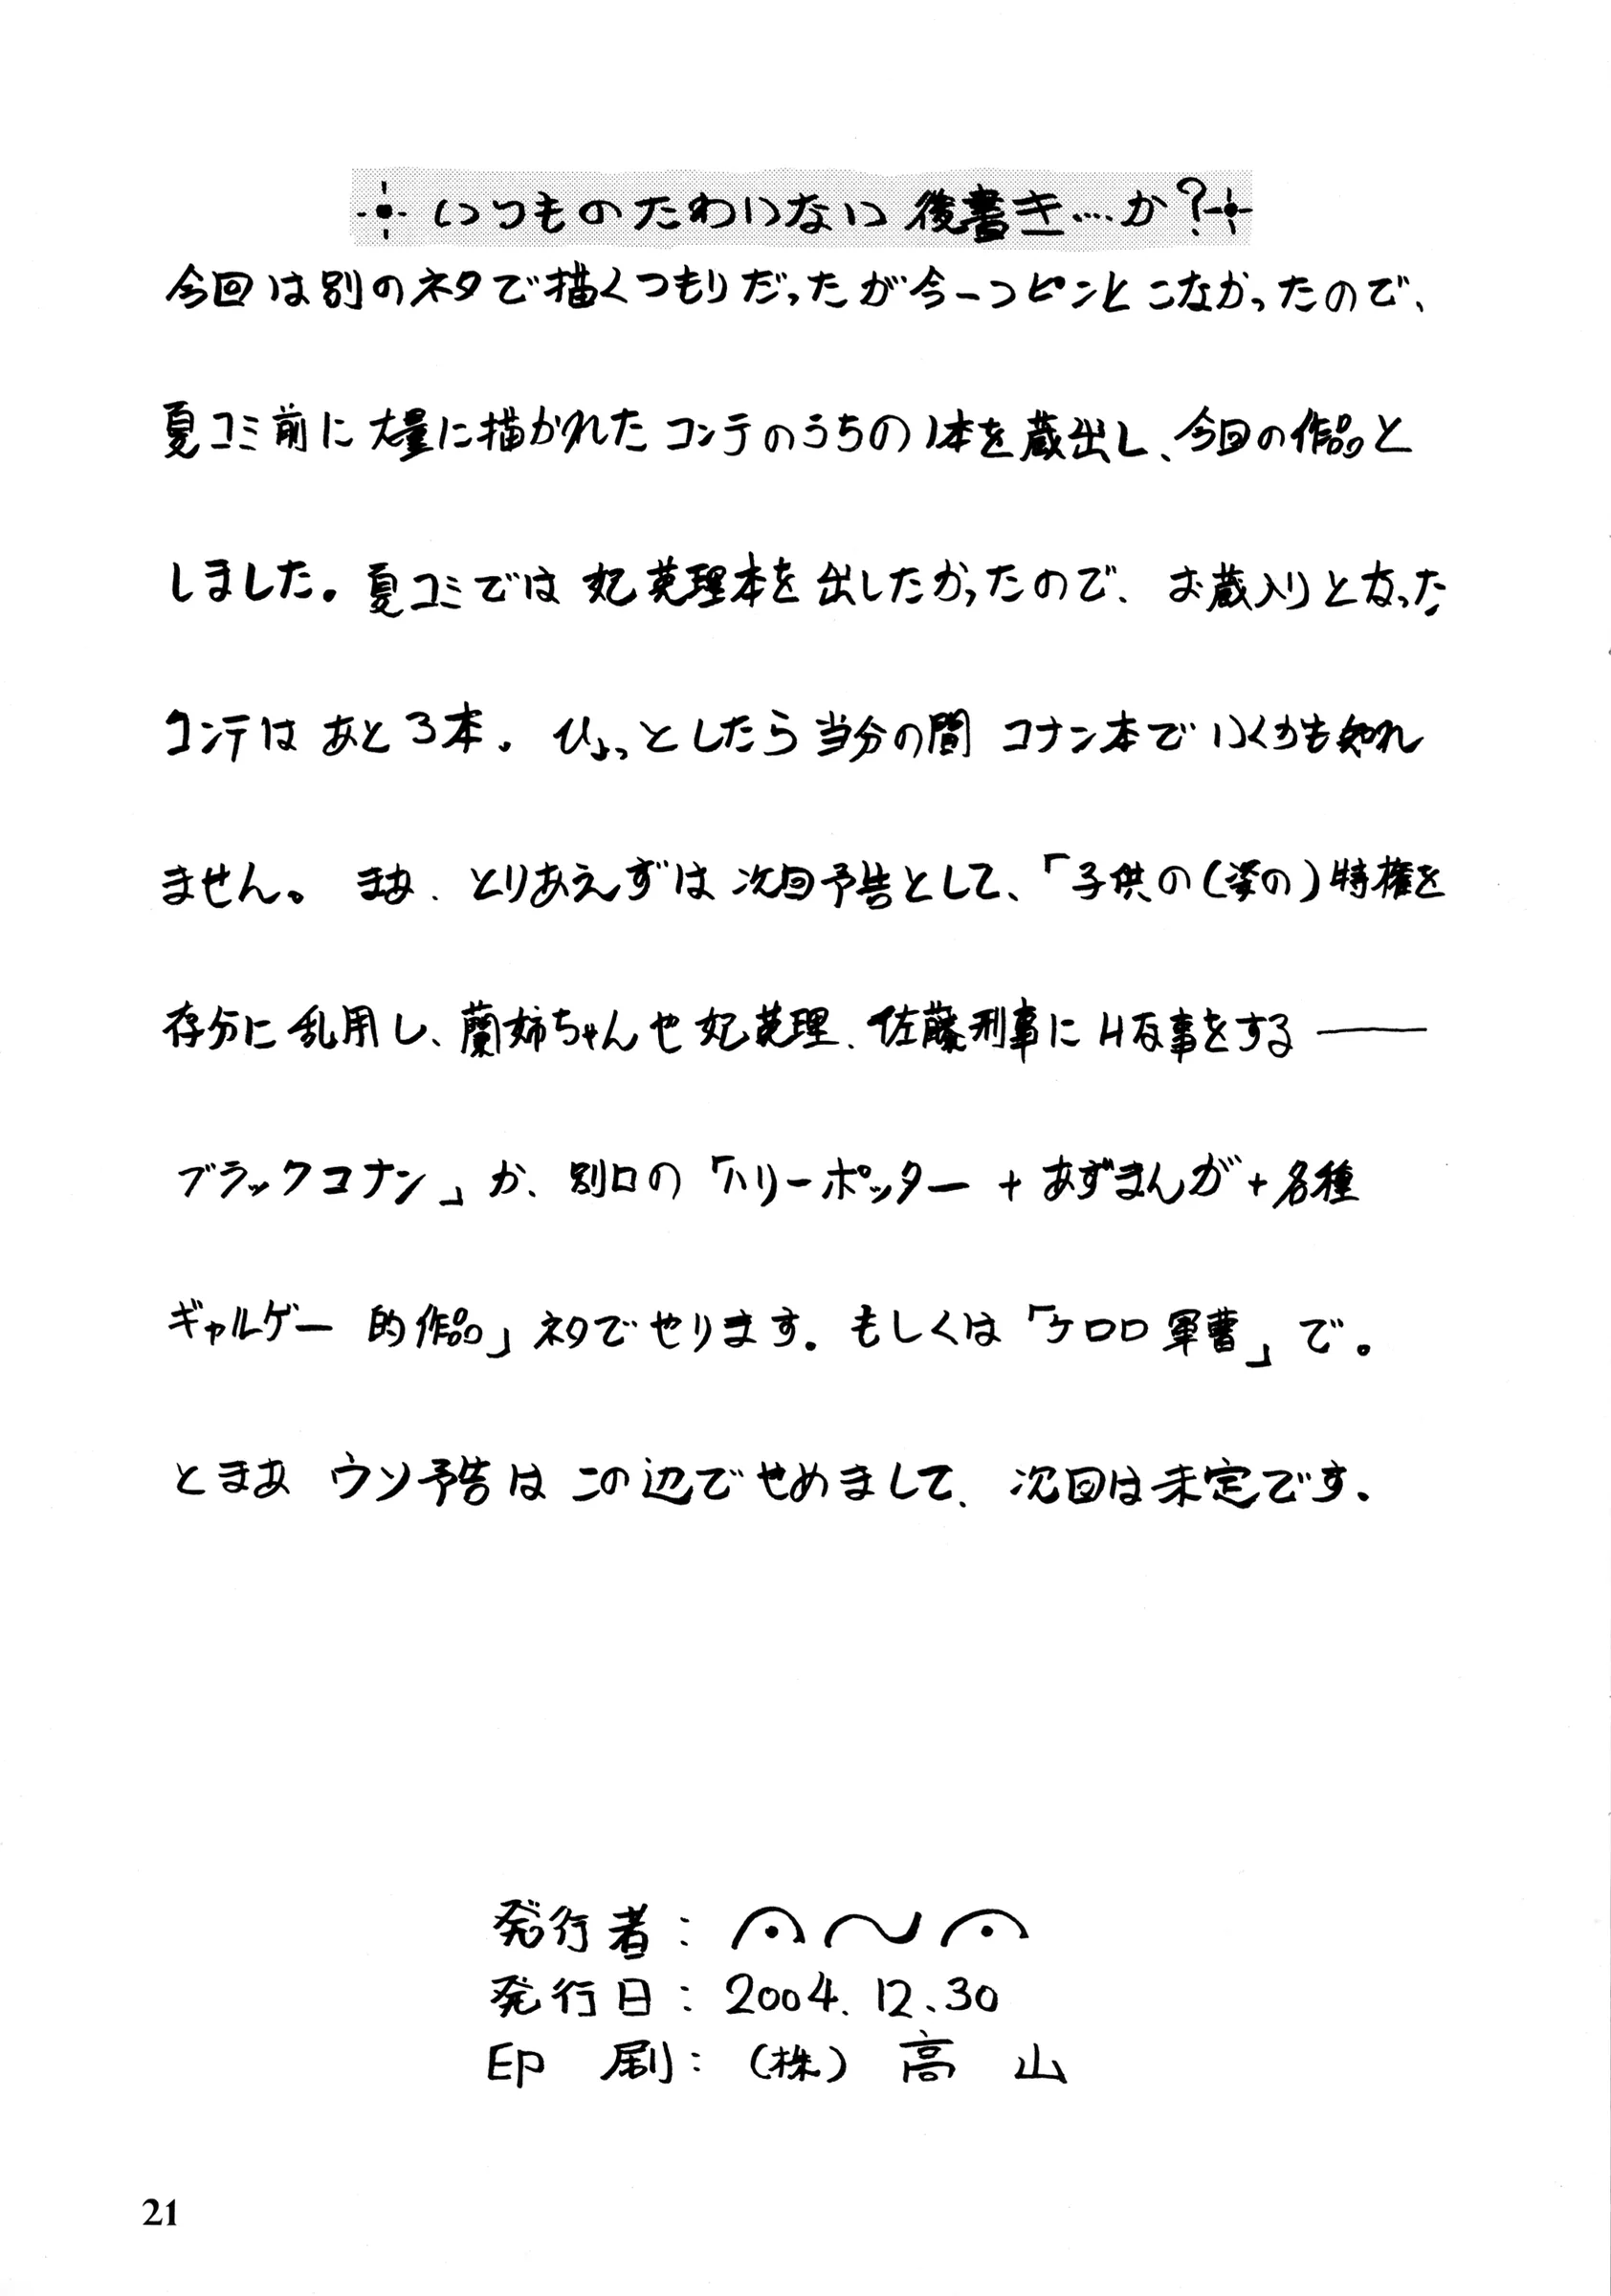 いつものたわいない後書き‥‥か?
今回は別のネタで描くつもりだったが今一つピンとこなかったので、
夏コミ前に大量に描かれたコンテのうちの1本を蔵出し、今回の作品と
しました。夏コミでは妃英理本を出したかったので、お蔵入りとなった
コンテはあと3本。ひょっとしたら当分の間コナン本でいくかも知れ
ません。まあ、とりあえずは次回予告として、「子供の(姿の)特権を
存分に乱用し、蘭姉ちゃんや妃英理、佐藤刑事にHな事をする――
ブラックコナン」か、別口の「ハリーポッター+あずまんが+各種
ギャルゲー的作品」ネタでやります。もしくは「ケロロ軍曹」で。
とまあ ウソ予告はこの辺でせめまして、次回は未定です。
発行者:
発行日:2004.12.30
印刷:(株)高山
21